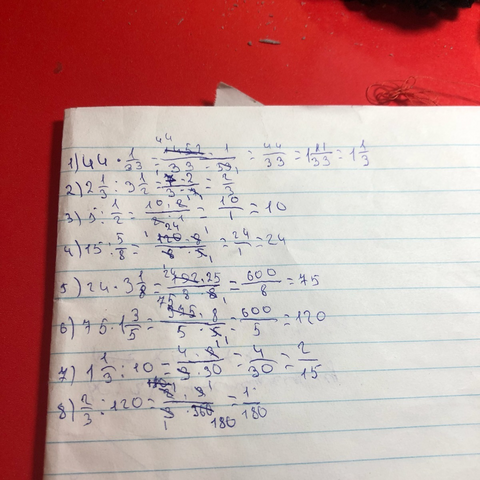 1) 44 · 1/33 = 1452 · 1 / 33 · 33 = 44/33 = 1 11/33 = 1 1/3
2) 2 1/3 : 3 1/2 = 7 · 2 / 3 · 7 = 2/3
3) 5 : 1/2 = 10 · 2 / 2 · 1 = 10/1 = 10
4) 15 : 5/8 = 120 · 8 / 8 · 5 = 24/1 = 24
5) 24 · 3 1/8 = 192 · 25 / 8 · 8 = 600/8 = 75
6) 75 · 1 3/5 = 375 · 8 / 5 · 5 = 600/5 = 120
7) 1 1/3 : 10 = 4 · 3 / 3 · 30 = 4/30 = 2/15
8) 2/3 : 120 = 2 · 3 / 3 · 360 = 1/180